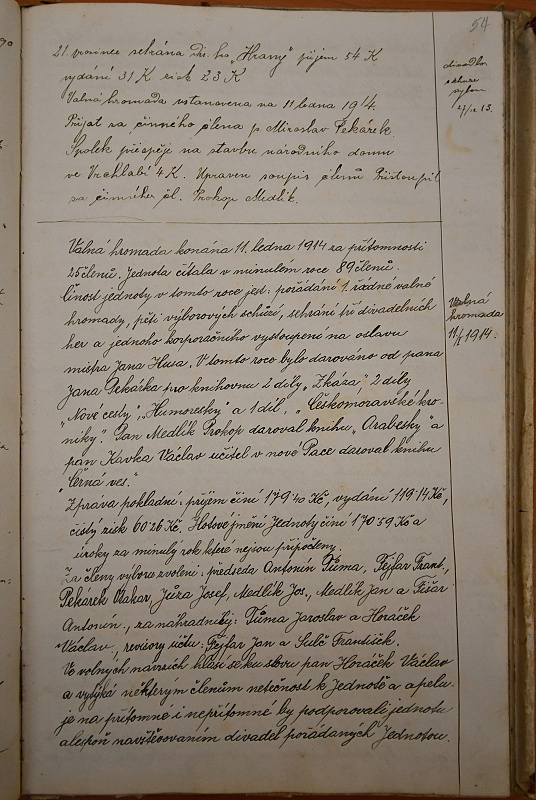 54
21. prosince sehrána div. hra „Hraný" příjem 54 K
vydání 31 K zisk 23 K
Valná hromada ustanovena na 11 ledna 1914.
Přijat za činného člena p. Miroslav Pekárek.
Spolek přispěje na stavbu národního domu
ve Vrchlabí 4 K. Upraven soupis členů Přistoupil
za činného čl. Prokop Medlík.
divadlo
schůze
27/12 13.
Valná hromada konána 11. ledna 1914 za přítomnosti
25 členů. Jednota čítala v minulém roce 89 členů.
Činost jednoty v tomto roce jest: pořádání 1. řádné valné
hromady, pěti výborových schůzí, sehrání tří divadelních
her a jednoho korporačního vystoupení na oslavu
mistra Jana Husa. V tomto roce bylo darováno od pana
Jana Pekárka pro knihovnu 2 díly „Zkáza", 2 díly
„Nové cesty", „Humoresky" a 1 díl, „Českomoravské kro-
niky". Pan Medlík Prokop daroval knihu „Arabesky" a
pan Kavka Václav učitel v nové Pace daroval knihu
„Černá ves."
Zpráva pokladní: příjem činí 179·40 Kč, vydání 119·14 Kč,
čistý zisk 60·26 Kč. Hotové jmění Jednoty činí 170·59 Kč a
úroky za minulý rok které nejsou připočteny.
Za členy výboru zvoleni: předseda Antonín Tůma, Fejfar Frant.,
Pekárek Otakar, Jůza Josef, Medlík Jos., Medlík Jan a Fišar
Antonín, za náhradníky: Tůma Jaroslav a Horáček
Václav, revisory účtů: Fejfar Jan a Sulc František.
Ve volných návrzích hlásí se ku slovu pan Horáček Václav
a vytýká některým členům netečnost k Jednotě a apelu-
je na přítomné i nepřítomné by podporovali jednotu
alespoň navštěvováním divadel pořádaných Jednotou.
Valná
hromada
11/I 1914.